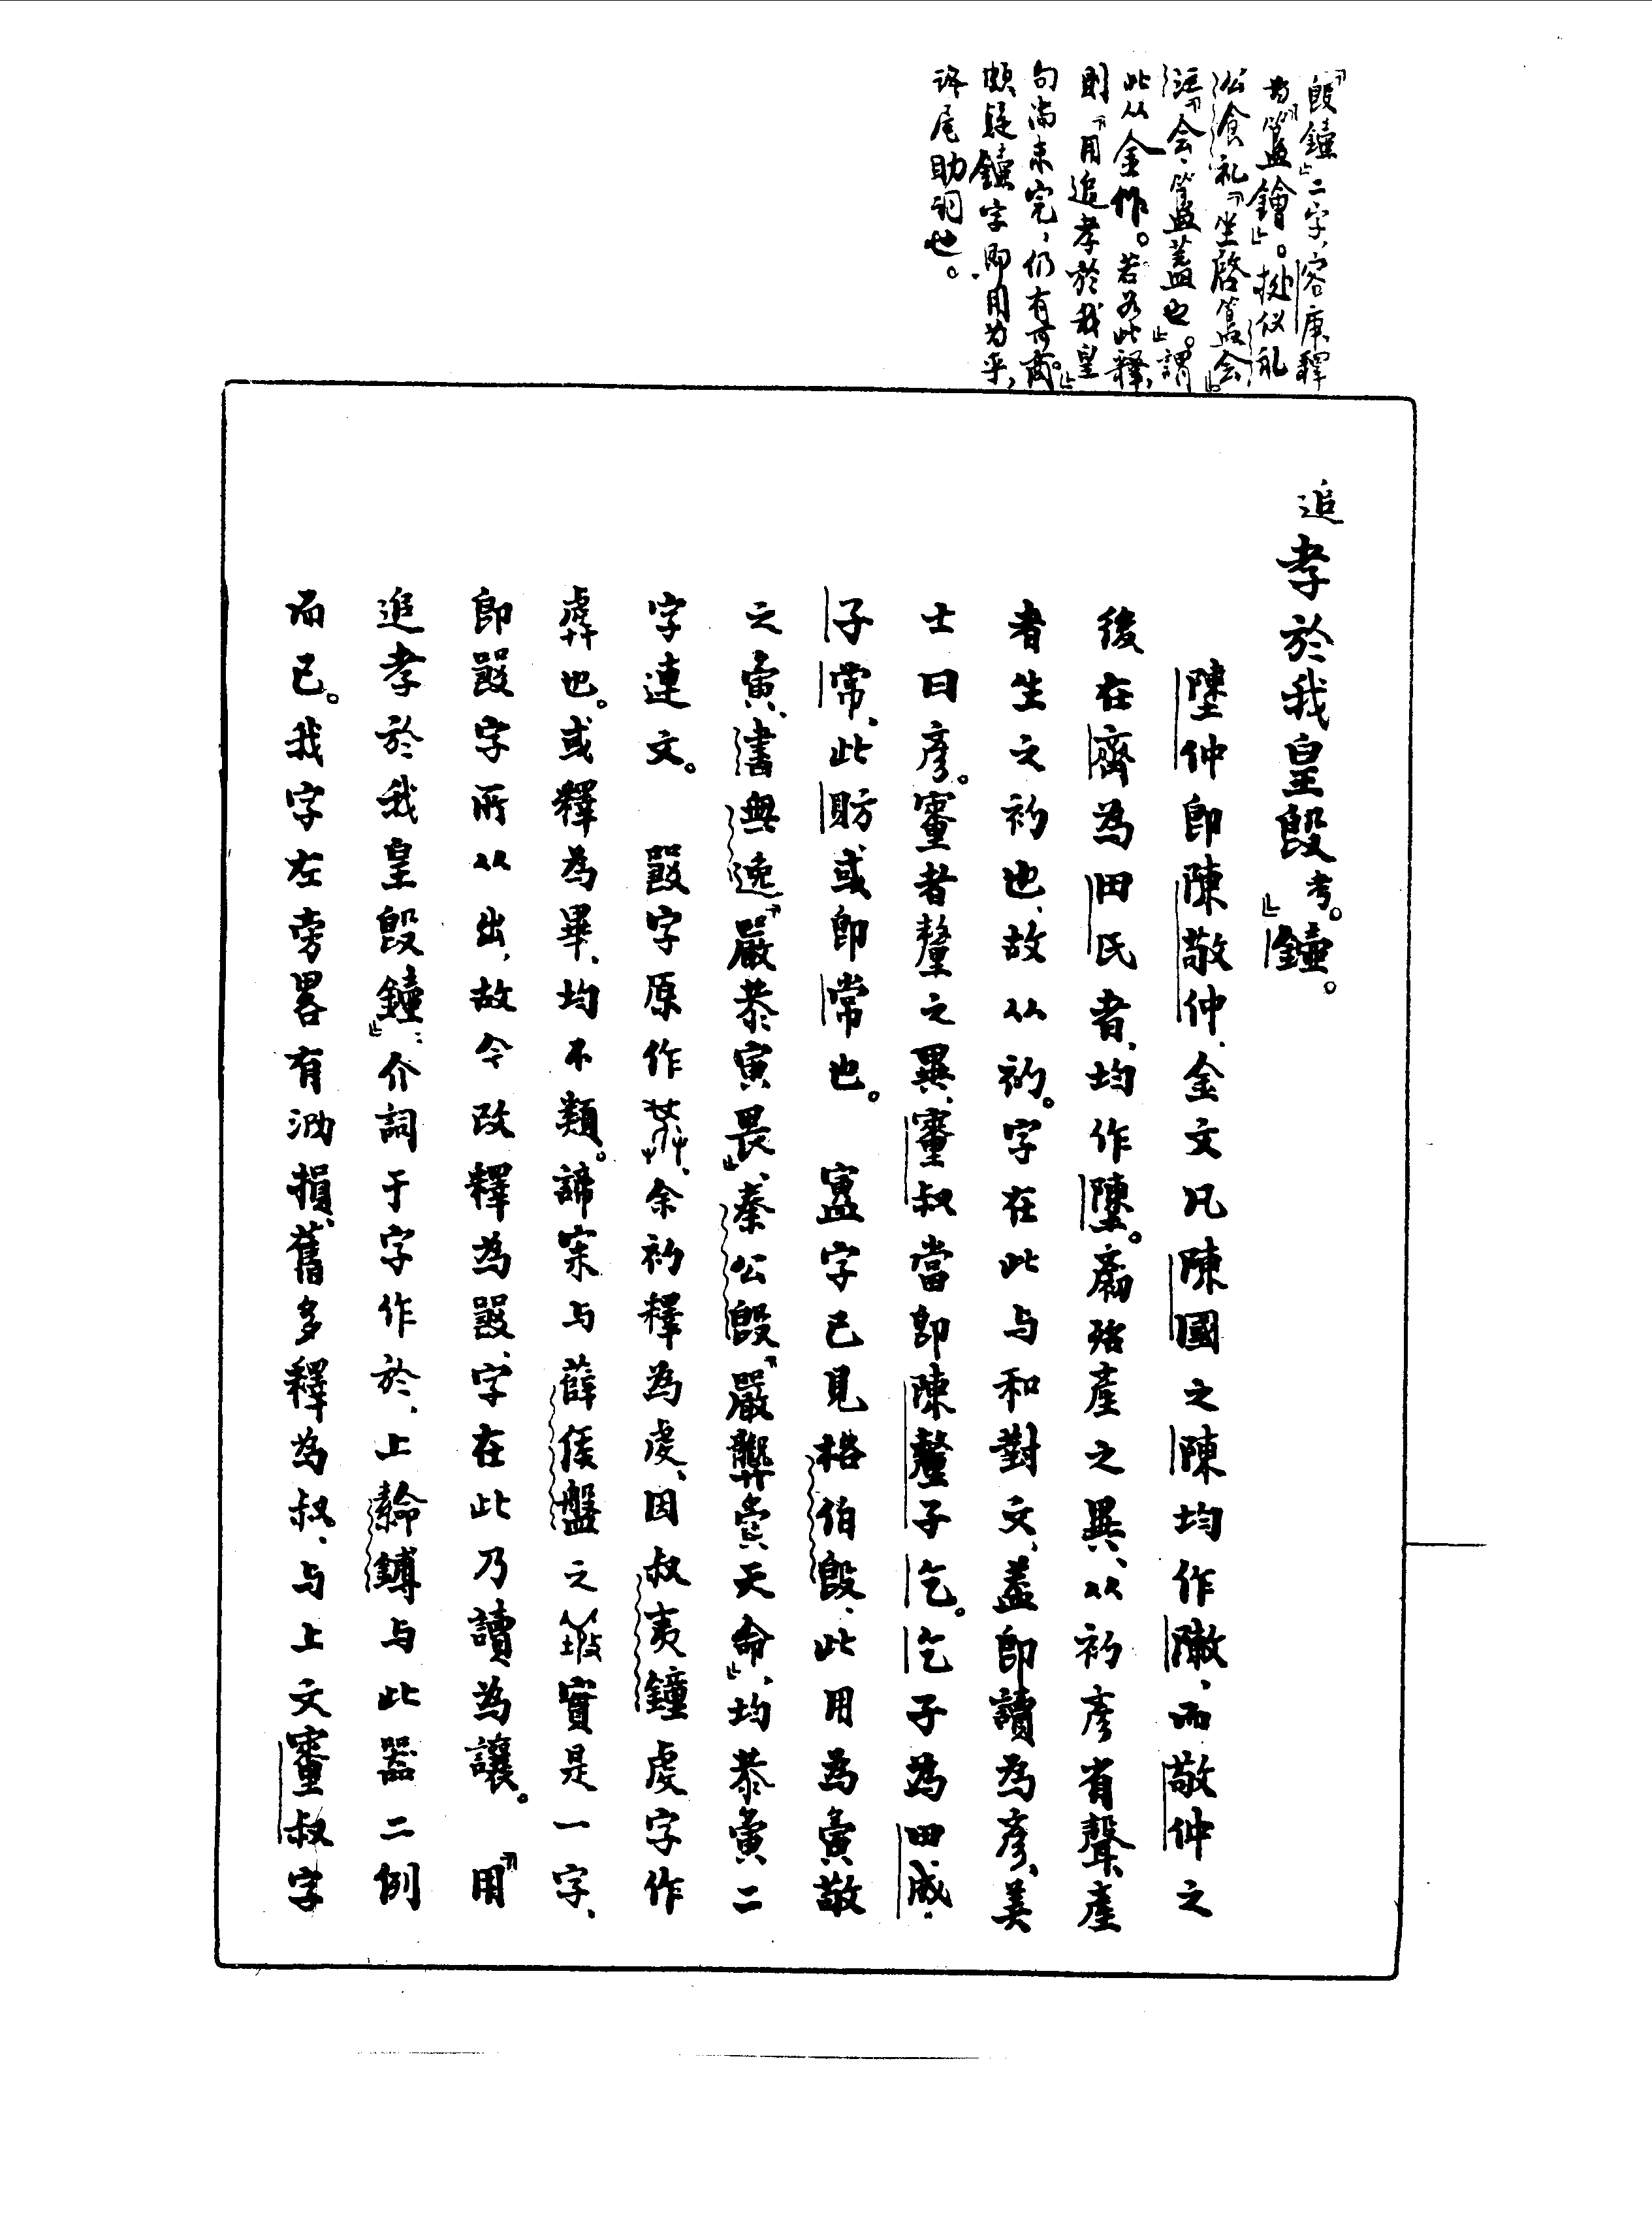 「𣪘鐘」二字，容庚釋
為「簋鐈」。據仪礼
公食礼「坐啓簋会」
注「会，簋蓋也。」謂
此从金作。若如此释，
則「用追孝於我皇」
句尚未完，仍有可商。
頗疑鐘字即用为乎，
語尾助詞也。
追孝於我皇𣪘考。」鐘。
塦仲即陳敬仲，金文凡陳國之陳均作敶，而敬仲之
後在齊為田氏者，均作塦。𢒉殆產之異，从初彥省聲，產
者生之初也，故从初。字在此与和對文，蓋即讀為彥，美
士曰彥。𡫳者釐之異，𡫳叔當即陳釐子乞。乞子為田成
子常，此𧵊或即常也。　𥁰字已見格伯𣪘，此用為夤敬
之寅，書無逸「嚴恭寅畏」，秦公𣪘「嚴龏夤天命」，均恭夤二
字連文。　𣪘字原作，余初釋為虔，因叔夷鐘虔字作
也。或釋為畢，均不類。諦宷与薛侯盤之實是一字，
即𣪘字所从出，故今改釋為𣪘，字在此乃讀為讓。　「用
追孝於我皇𣪘鐘」：介詞于字作於，上𦅫鎛与此器二例
而已。我字左旁畧有泐損，舊多釋為叔，与上文𡫳叔字